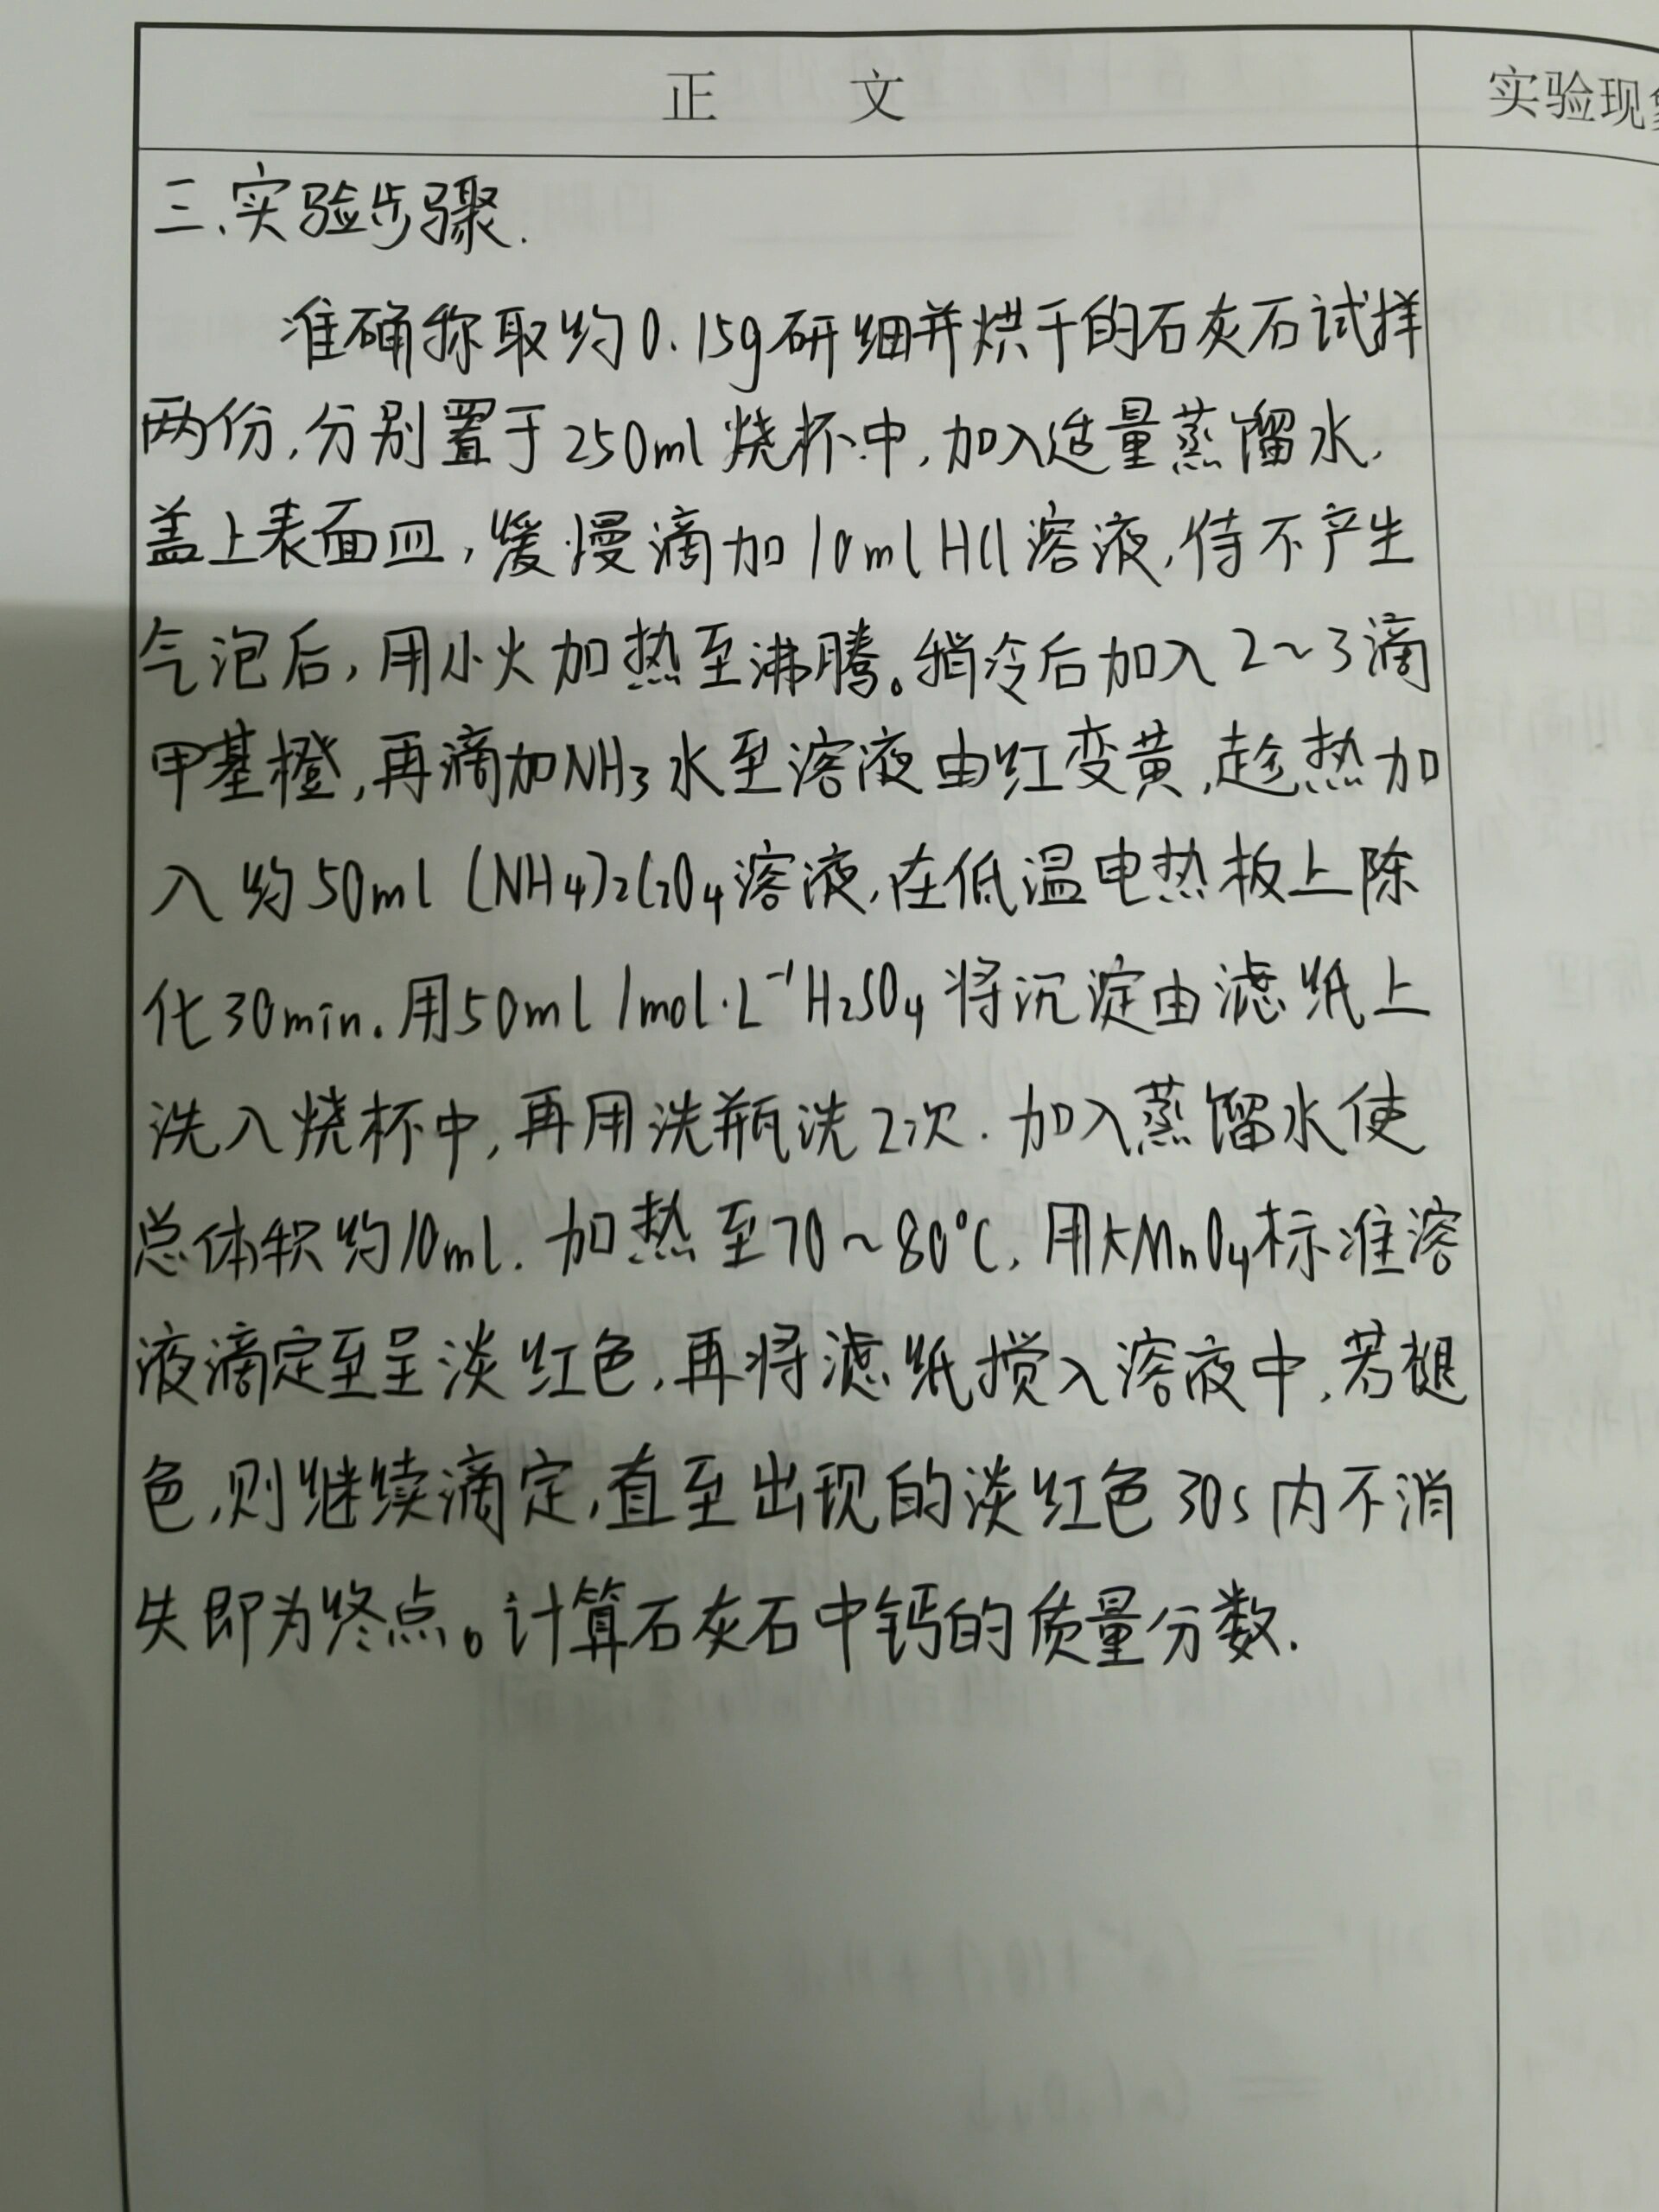 正 文
实验现
三、实验步骤.
准确称取约0.15g研细并烘干的石灰石试样
两份,分别置于250ml烧杯中,加入适量蒸馏水,
盖上表面皿,缓慢滴加10mlHCl溶液,待不产生
气泡后,用小火加热至沸腾。稍冷后加入2~3滴
甲基橙,再滴加NH₃水至溶液由红变黄,趁热加
入约50ml (NH₄)₂C₂O₄溶液,在低温电热板上陈
化30min.用50ml 1mol·L⁻¹H₂SO₄将沉淀由滤纸上
洗入烧杯中,再用洗瓶洗2次.加入蒸馏水使
总体积约10ml.加热至70~80℃,用KMnO₄标准溶
液滴定至呈淡红色,再将滤纸搅入溶液中,若褪
色,则继续滴定,直至出现的淡红色30s内不消
失即为终点。计算石灰石中钙的质量分数.